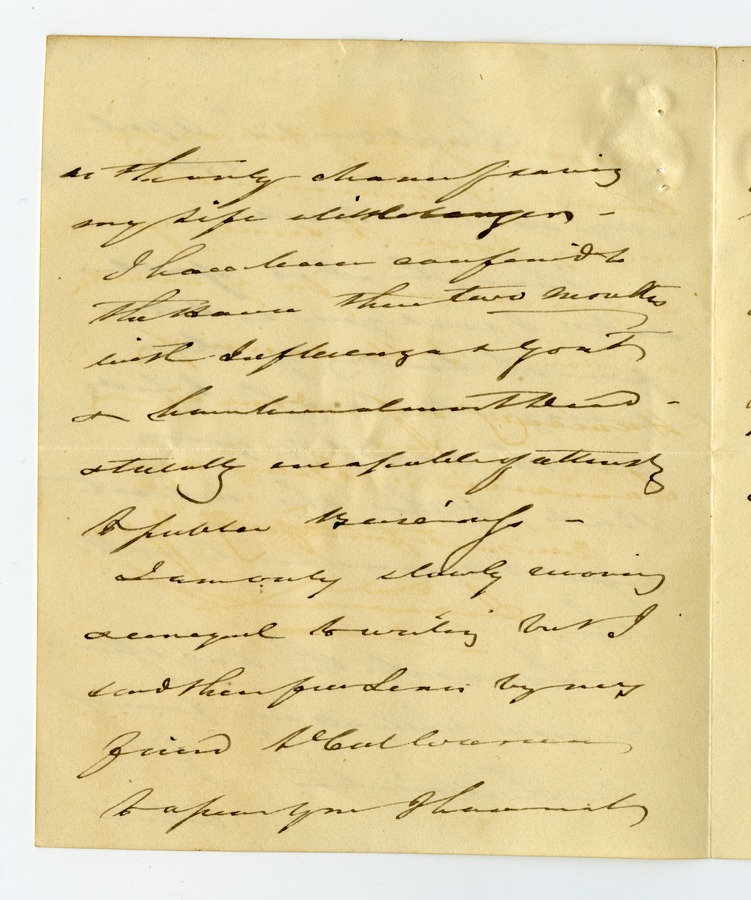 as the only chance of saving
my life
I have been confined to
the House these two months
with Influenza & Gout
& have been almost dead -
& totally incapable of attending
to public Business -
I am only slowly
unequal to writing but I
send these few Lines by my
friend
to assure you I have not